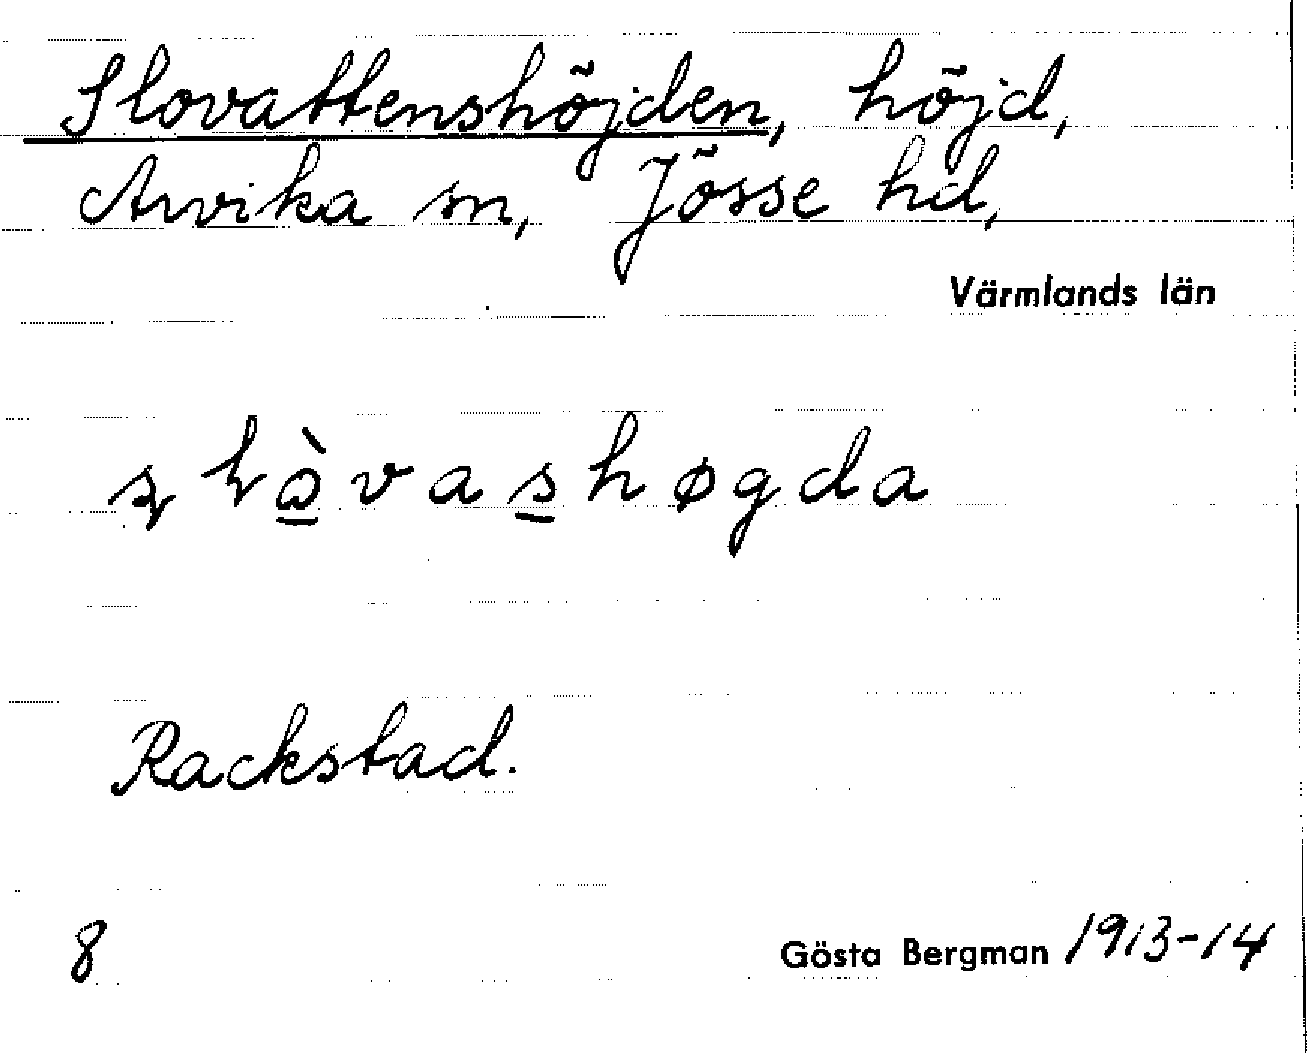 Slovattenshöjden, höjd,
Arvika sn, Jösse hd,
Värmlands län
Rackstad.
8
Gösta Bergman 1913-14